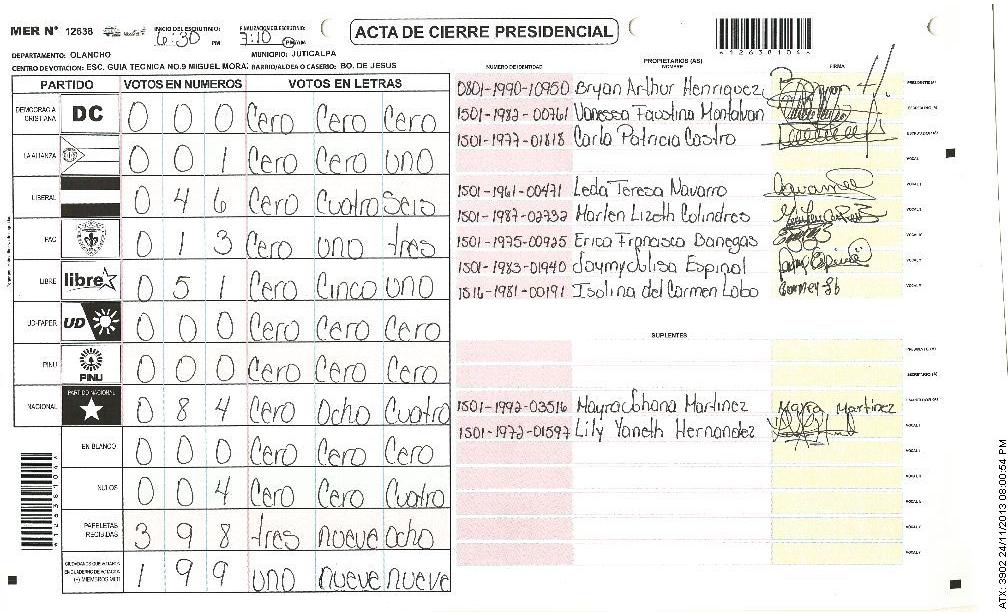 MER Nº 12638
INICIO DEL ESCRUTINIO: 6:30 PM
FINALIZACION DEL ESCRUTINIO: 7:10 PM
ACTA DE CIERRE PRESIDENCIAL
DEPARTAMENTO: OLANCHO MUNICIPIO: JUTICALPA
CENTRO DE VOTACION: ESC. GUIA TECNICA NO.9 MIGUEL MORA BARRIO/ALDEA O CASERIO: BO. DE JESUS
PARTIDO VOTOS EN NUMEROS VOTOS EN LETRAS
DEMOCRACIA CRISTIANA DC 0 0 0 Cero Cero Cero
LA ALIANZA 0 0 1 Cero Cero uno
LIBERAL 0 4 6 Cero Cuatro Seis
PAC 0 1 3 Cero uno tres
LIBRE libre 0 5 1 Cero Cinco uno
UD-FAPER UD 0 0 0 Cero Cero Cero
PINU PINU 0 0 0 Cero Cero Cero
NACIONAL PARTIDO NACIONAL 0 8 4 Cero Ocho Cuatro
EN BLANCO 0 0 0 Cero Cero Cero
NULOS 0 0 4 Cero Cero Cuatro
PAPELETAS RECIBIDAS 3 9 8 tres nueve Ocho
1 9 9 uno nueve nueve
PROPIETARIOS (AS)
NUMERO DE IDENTIDAD NOMBRE FIRMA
0801-1990-10950 Bryan Arthur Henriquez
1501-1982-00761 Vanessa Faustina Montalvan
1501-1977-01818 Carla Patricia Castro
1501-1961-00471 Leda Teresa Navarro
1501-1987-02732 Marlen Lizeth Colindres
1501-1975-00925 Erica Francisca Banegas
1501-1983-01940 Jaymy Julisa Espinal
1516-1981-00191 Isolina del Carmen Lobo
SUPLENTES
1501-1992-03516 Mayra Johana Martinez Mayra Martinez
1501-1972-01597 Lily Yaneth Hernandez
4126381094
ATX: 3902 24/11/2013 08:00:54 PM